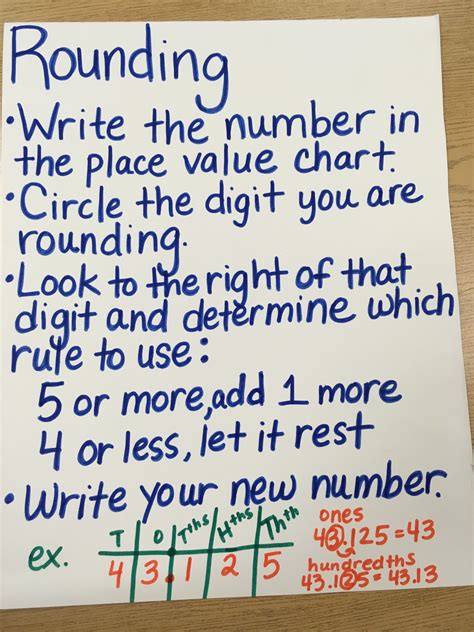 Rounding
•Write the number in
the place value chart.
•Circle the digit you are
rounding.
•Look to the right of that
digit and determine which
rule to use:
5 or more, add 1 more
4 or less, let it rest
•Write your new number.
ex.
T O Tths Hths Thth
4 3 . 1 2 5
ones
43.125=43
hundredths
43.125=43.13